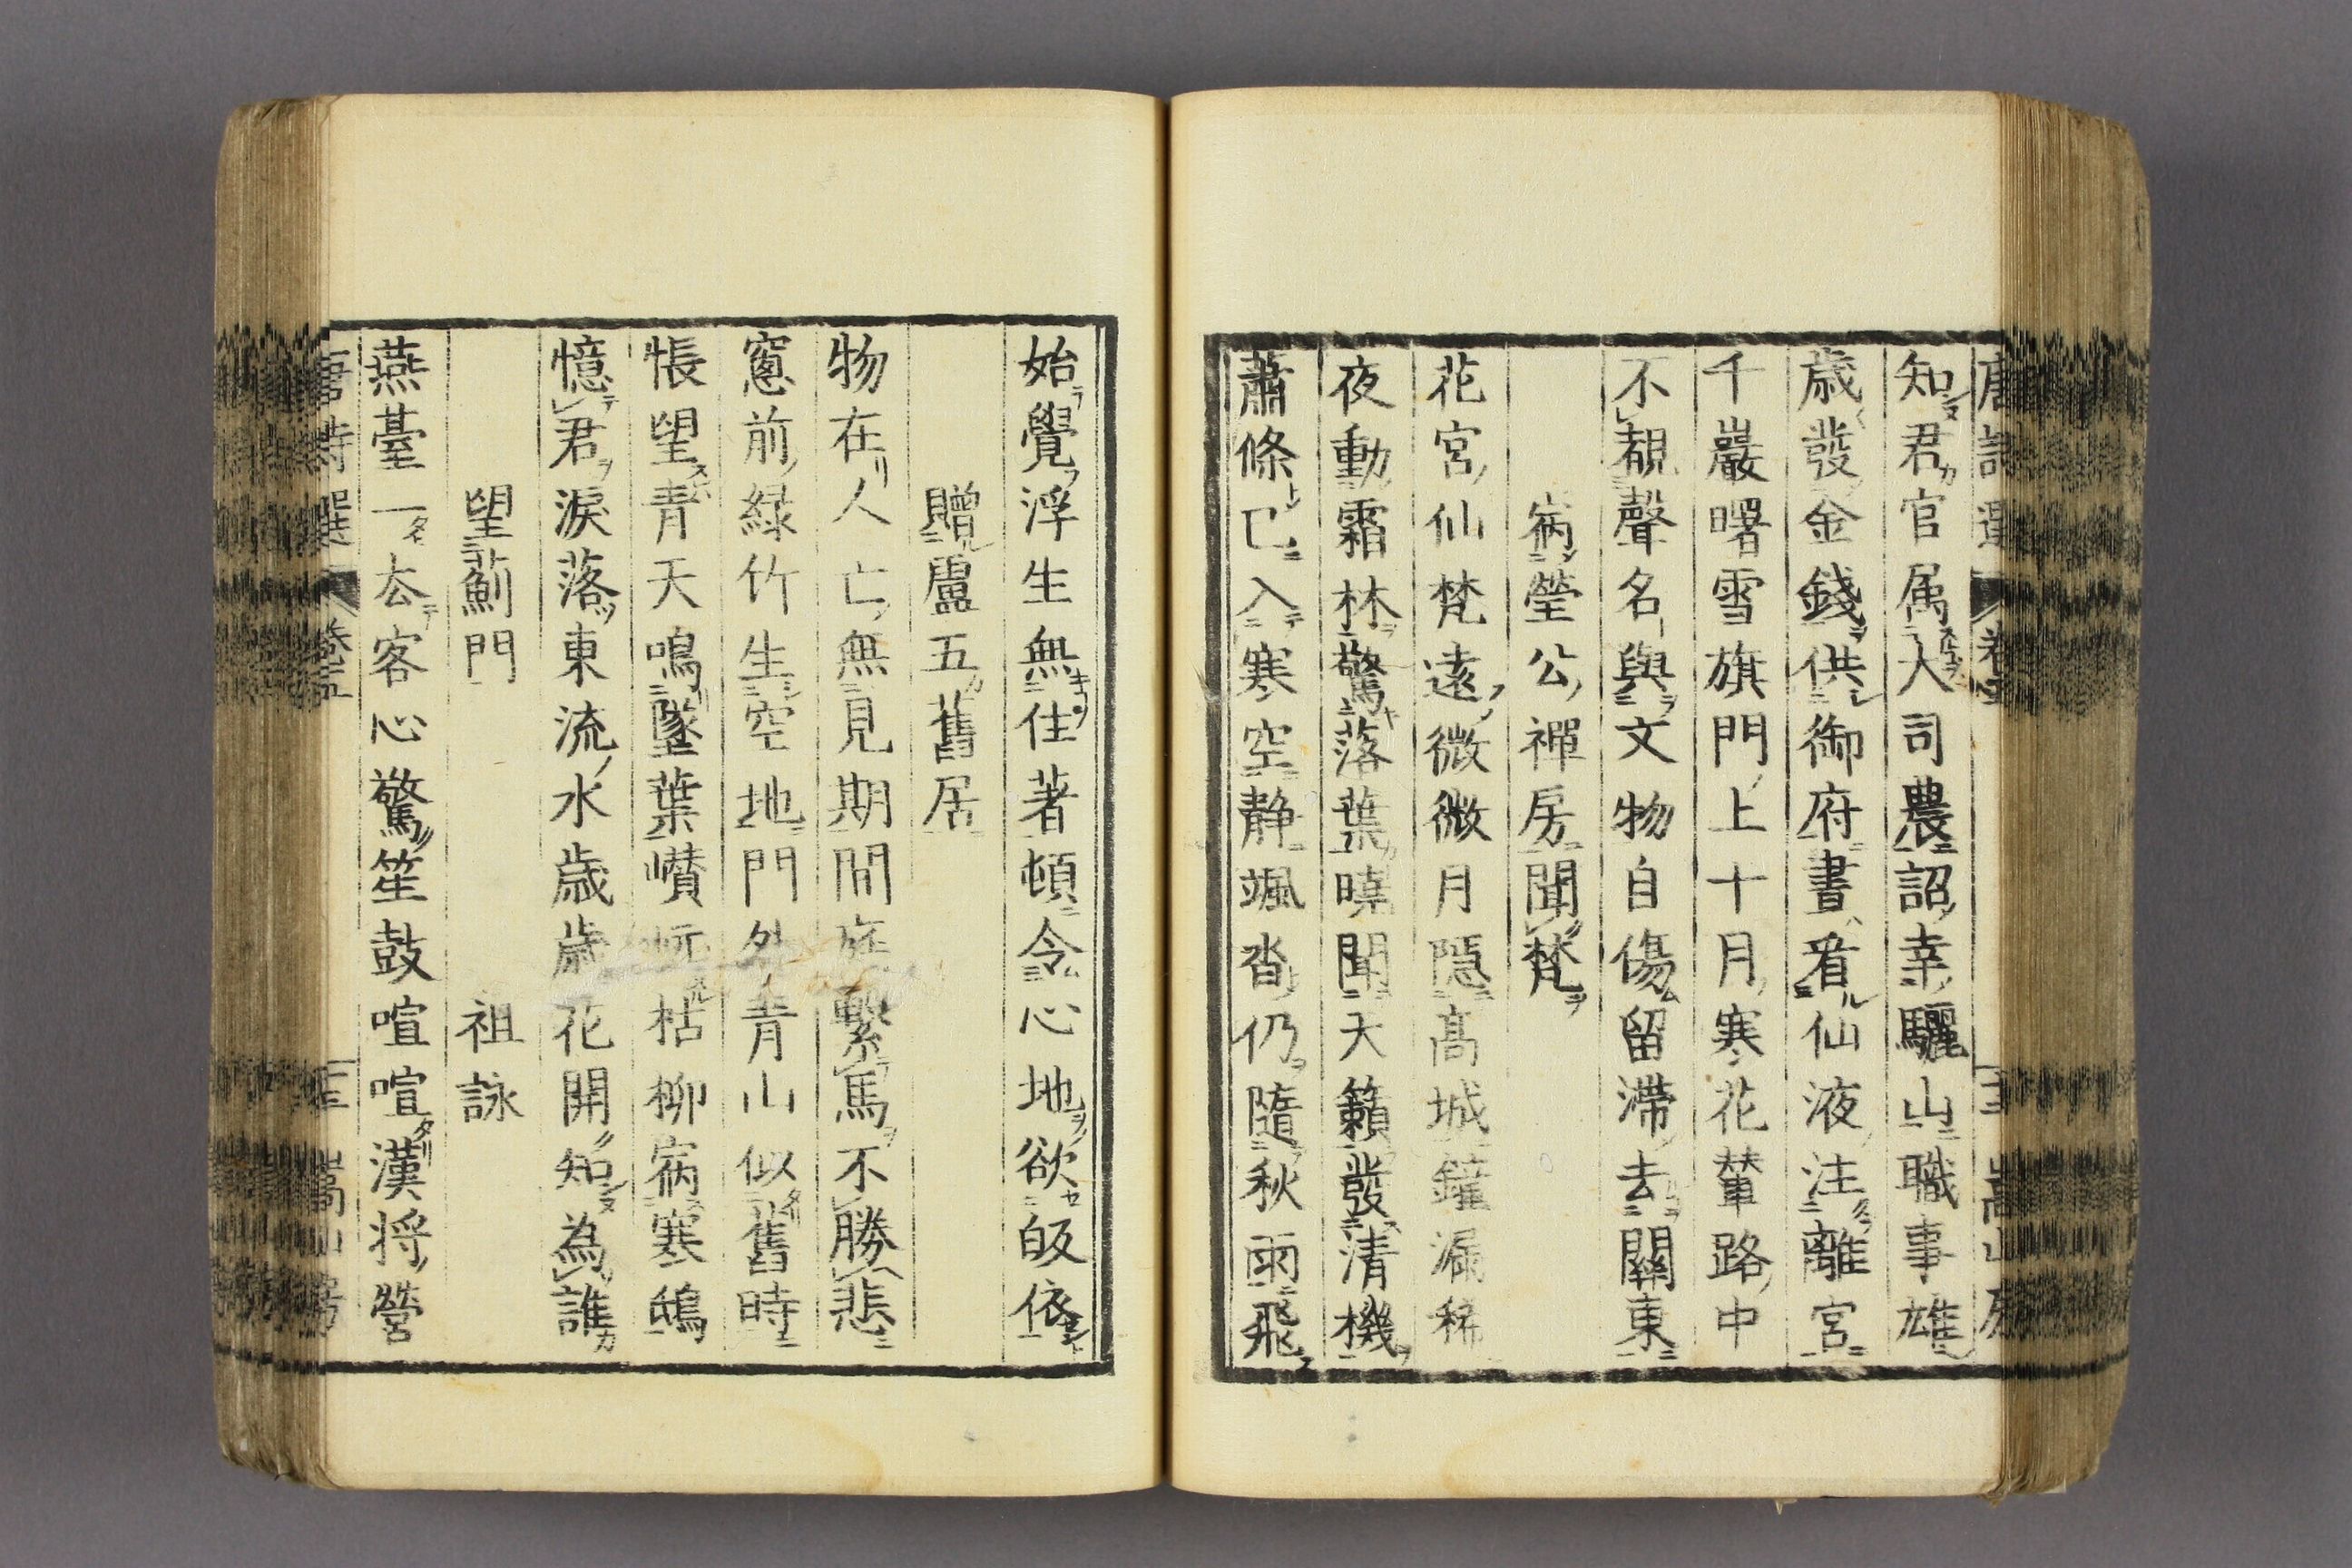 知君官属大司農詔幸驪山職事雄
歳發金錢供御府晝看仙液注離宮
千巖曙雪旗門上十月寒花輦路中
不覩聲名與文物自傷留滯去關東
宿瑩公禪房聞梵
花宮仙梵遠微微月隠高城鐘漏稀
夜動霜林驚落葉曉聞天籟發清機
蕭條已入寒空静颯沓仍隨秋雨飛
始覺浮生無住著頓令心地欲皈依
贈盧五舊居
物在人亡無見期閒庭繋馬不勝悲
窻前緑竹生空地門外青山似舊時
悵望青天鳴墜葉巑岏枯柳宿寒鴟
憶君涙落東流水歳歳花開知為誰
望薊門　祖詠
燕臺一去客心驚笙鼓喧喧漢将營
唐詩選 卷五 嵩山房